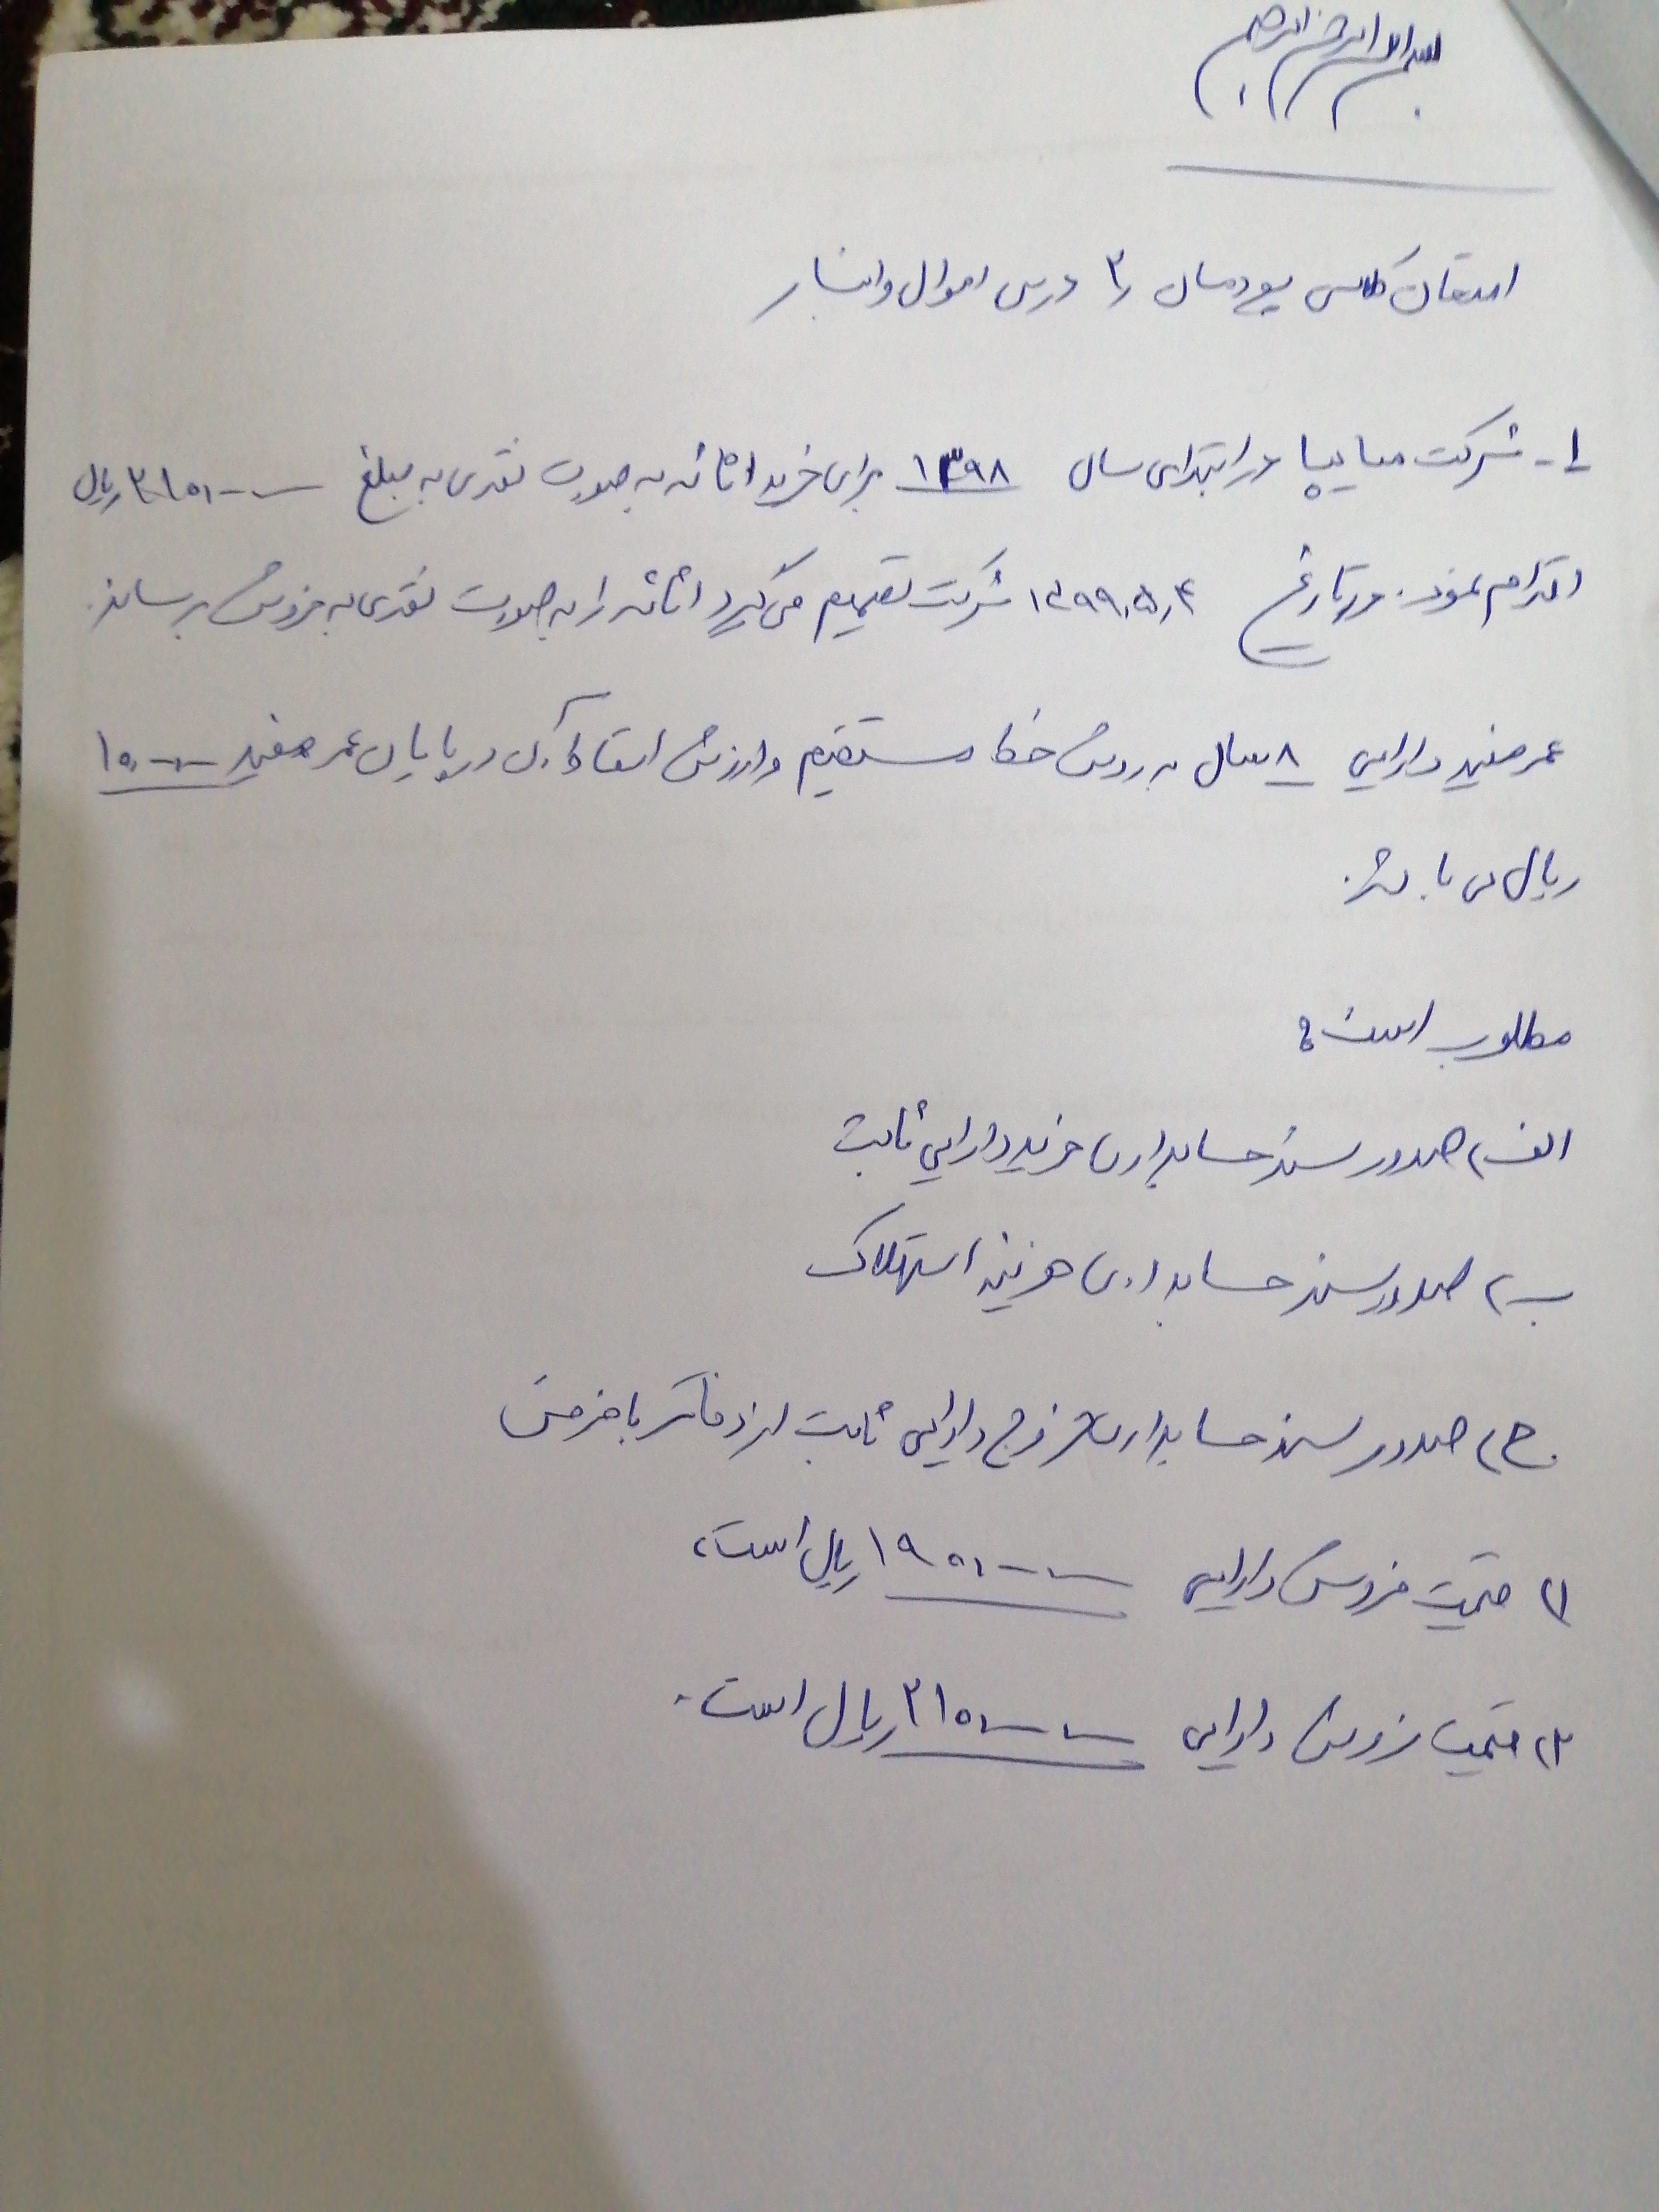 بسم الله الرحمن الرحیم
امتحان کلاسی پودمان ۳ درس اموال و انبار
۱- شرکت سایپا در ابتدای سال ۱۳۹۸ برای خرید اثاثه به صورت نقدی به مبلغ ریال
اقدام نمود. در تاریخ ۱۳۹۹،۵،۴ شرکت تصمیم می گیرد اثاثه را به صورت نقدی به فروش برساند.
عمر مفید دارایی ۸ سال به روش خط مستقیم و ارزش اسقاط آن در پایان عمر مفید
ریال می باشد.
مطلوب است:
الف) صدور سند حسابداری خرید دارایی ثابت
ب) صدور سند حسابداری هزینه استهلاک
ج) صدور سند حسابداری خروج دارایی ثابت از دفاتر با فرض
۱) قیمت فروش دارایی ریال است،
۲) قیمت فروش دارایی ریال است.